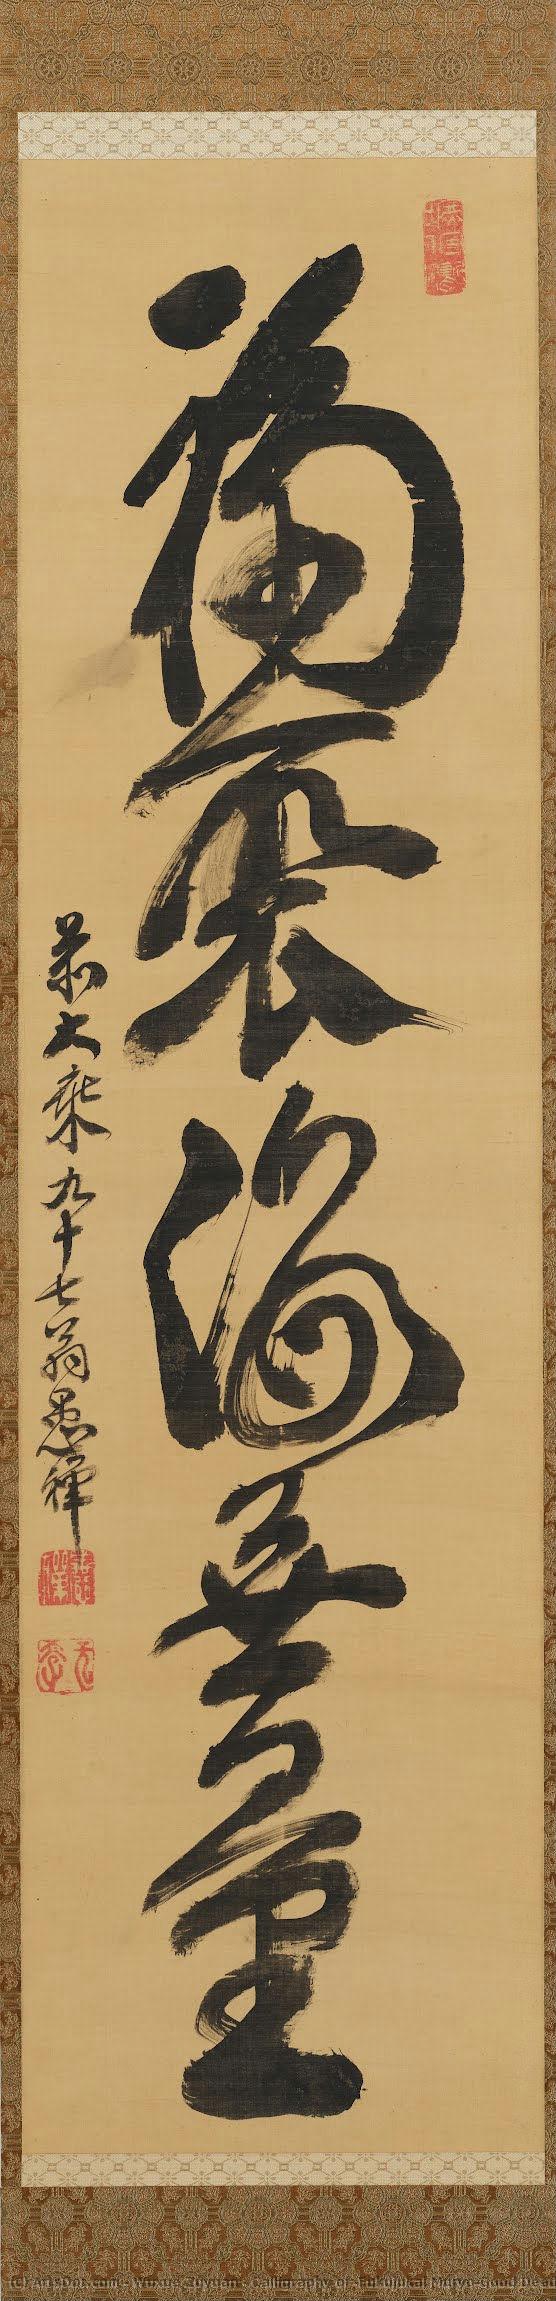 福聚海無量
前大乗九十七翁愚禅
(c) ArtsDot.com - Wuxue Zuyuan - Calligraphy of Fukujukai Muryo-Good